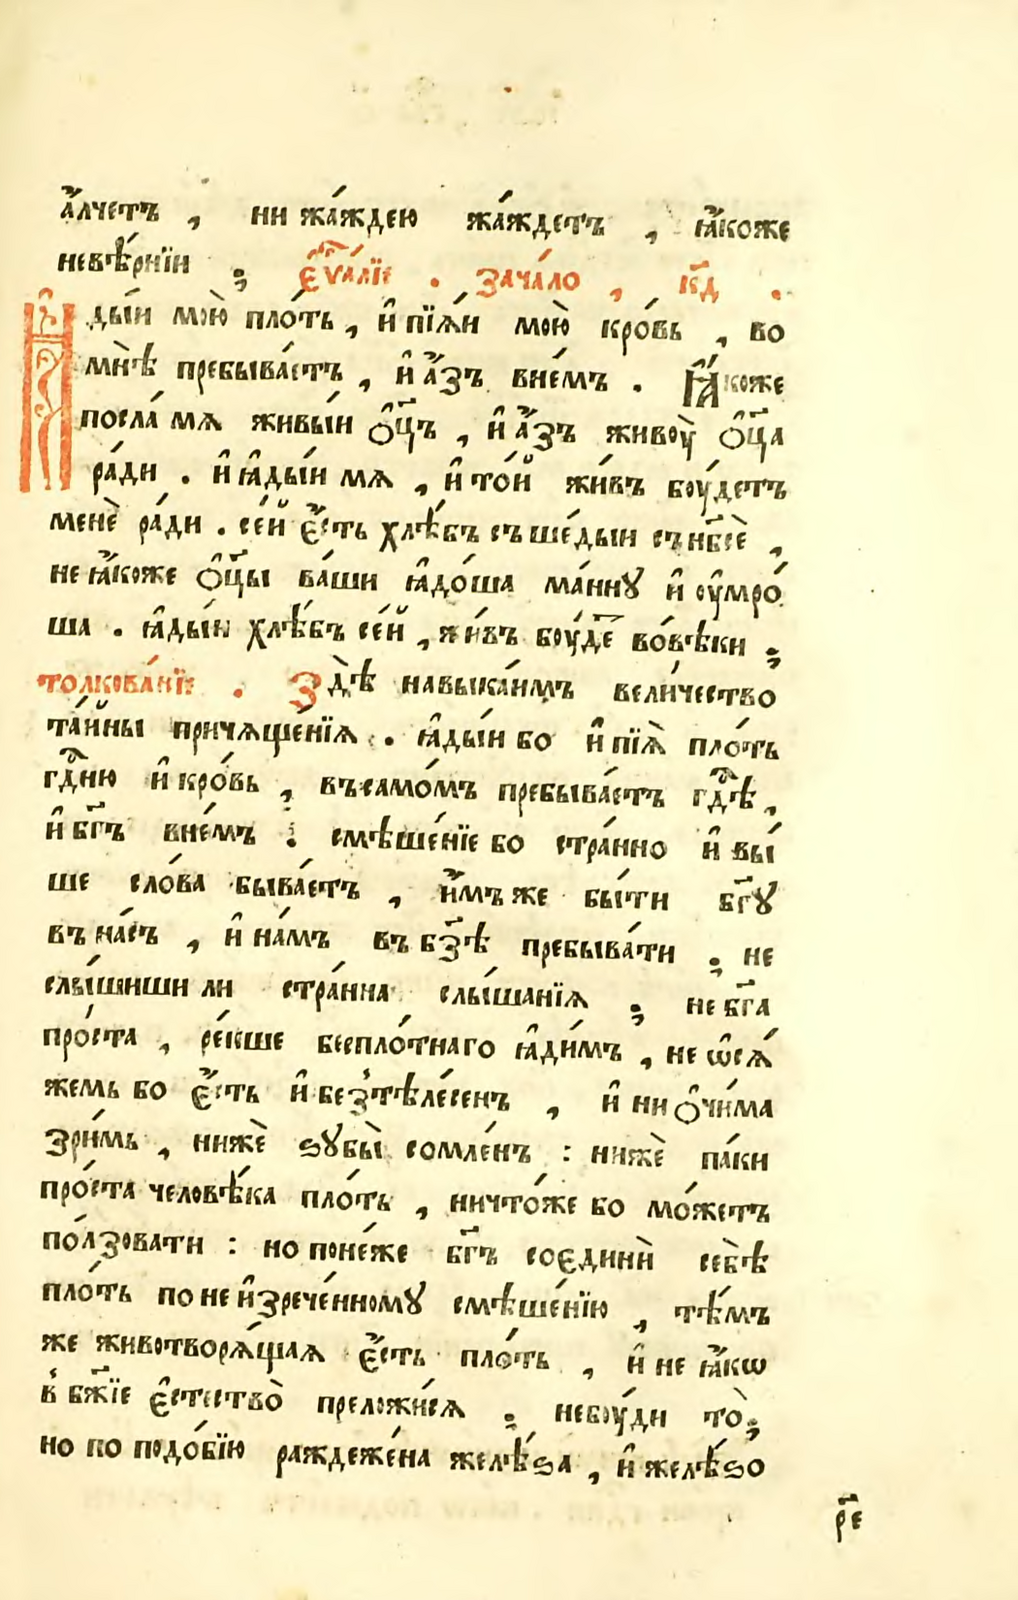 а҆́лчетъ , ни жа́ждею жа́ждетъ , ꙗ҆́коже
невѣ́рнїи ; є҆ѵⷢ҇а́лїе . зача́ло , к҃д .
Ꙗ҆ды́и мою̀ пло́ть , и҆ пїѧ́и мою̀ кро́вь , во
мнѣ̀ пребыва́етъ , и҆ а҆́зъ внемъ . Ꙗ҆́коже
посла́ мѧ живы́и ѻ҆ц҃ъ , и҆ а҆́зъ живоу̀ ѻ҆ц҃а
ра́ди . и҆ ꙗ҆ды́и мѧ , и҆ то́й жи́въ боу́детъ
менѐ ра́ди . се́й є҆́сть хлѣ́бъ съшедыи съ нб҃сѐ ,
не ꙗ҆́коже ѻ҆ц҃ы ва́ши ꙗ҆до́ша ма́ннꙋ и҆ оу҆мро́
ша . ꙗ҆ды́и хлѣ́бъ се́й , жи́въ боу́деⷮ во́вѣки ;
толкова́нїе . Здѣ̀ навыка́имъ вели́чество
та́йны причѧще́нїѧ . ꙗ҆ды́и бо и҆ пїѧ̀ пло́ть
гдⷭ҇ню и҆ кро́вь , въ само́мъ пребыва́етъ гдⷭ҇ѣ ,
и҆ бг҃ъ вне́мъ : смѣше́нїе бо стра́нно и҆ вы́
ше сло́ва быва́етъ , и҆́мъ же бы́ти бг҃ꙋ
въ на́съ , и҆ на́мъ въ бз҃ѣ пребыва́ти ; не
слы́шиши ли стра́нна слы́шанїѧ ; не бг҃а
про́ста , ре́кше бесплóтнаго ꙗ҆ди́мъ , не ѡ҆сѧ́
жемь бо є҆́сть и҆ безтѣле́сенъ , и҆ ни ѻ҆чи́ма
зри́мь , нижѐ ѕꙋбы̀ сомле́нъ : нижѐ па́ки
про́ста человѣ́ка пло́ть , ничто́же бо мо́жетъ
по́лзовати : но поне́же бг҃ъ соединѝ себѣ̀
пло́ть по не и҆зрече́нномꙋ смѣше́нїю , тѣ́мъ
же животворѧ́щаѧ є҆́сть пло́ть , и҆ не ꙗ҆́кѡ
в̾ бж҃їе є҆стество̀ преложи́сѧ ; небоу́ди то̀;
но по подо́бїю ражде́жена желѣ́ѕа , и҆ желѣ́ѕо
р҃е